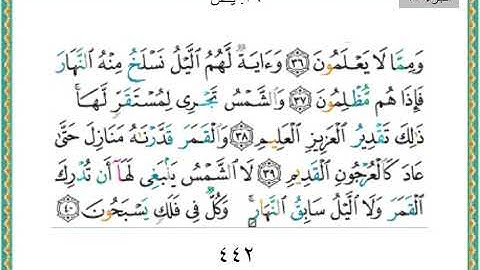 وَمِمَّا لَا يَعْلَمُونَ ٣٦ وَءَايَةٌ لَّهُمُ الَّيْلُ نَسْلَخُ مِنْهُ النَّهَارَ
فَإِذَا هُم مُّظْلِمُونَ ٣٧ وَالشَّمْسُ تَجْرِى لِمُسْتَقَرٍّ لَّهَا ۚ
ذَٰلِكَ تَقْدِيرُ الْعَزِيزِ الْعَلِيمِ ٣٨ وَالْقَمَرَ قَدَّرْنَٰهُ مَنَازِلَ حَتَّىٰ
عَادَ كَالْعُرْجُونِ الْقَدِيمِ ٣٩ لَا الشَّمْسُ يَنۢبَغِى لَهَآ أَن تُدْرِكَ
الْقَمَرَ وَلَا الَّيْلُ سَابِقُ النَّهَارِ ۚ وَكُلٌّ فِى فَلَكٍ يَسْبَحُونَ ٤٠
٤٤٢